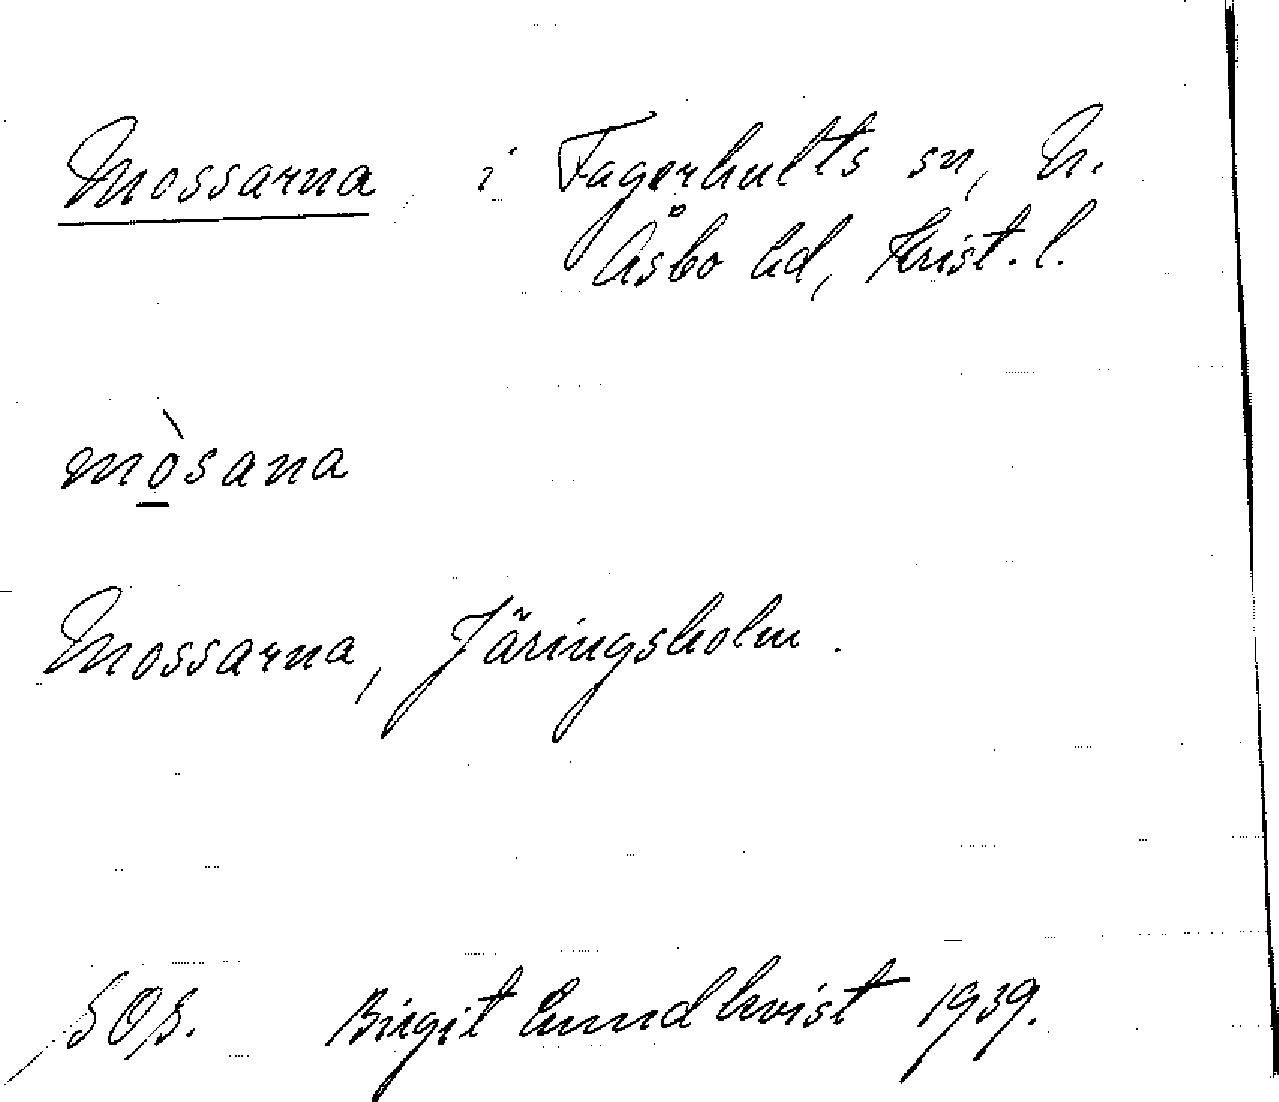 Mossarna i Fagerhults sn, N.
Åsbo hd, Krist. l.
mòsana
Mossarna, Järingsholm.
SOS. Birgit Lundkvist 1939.